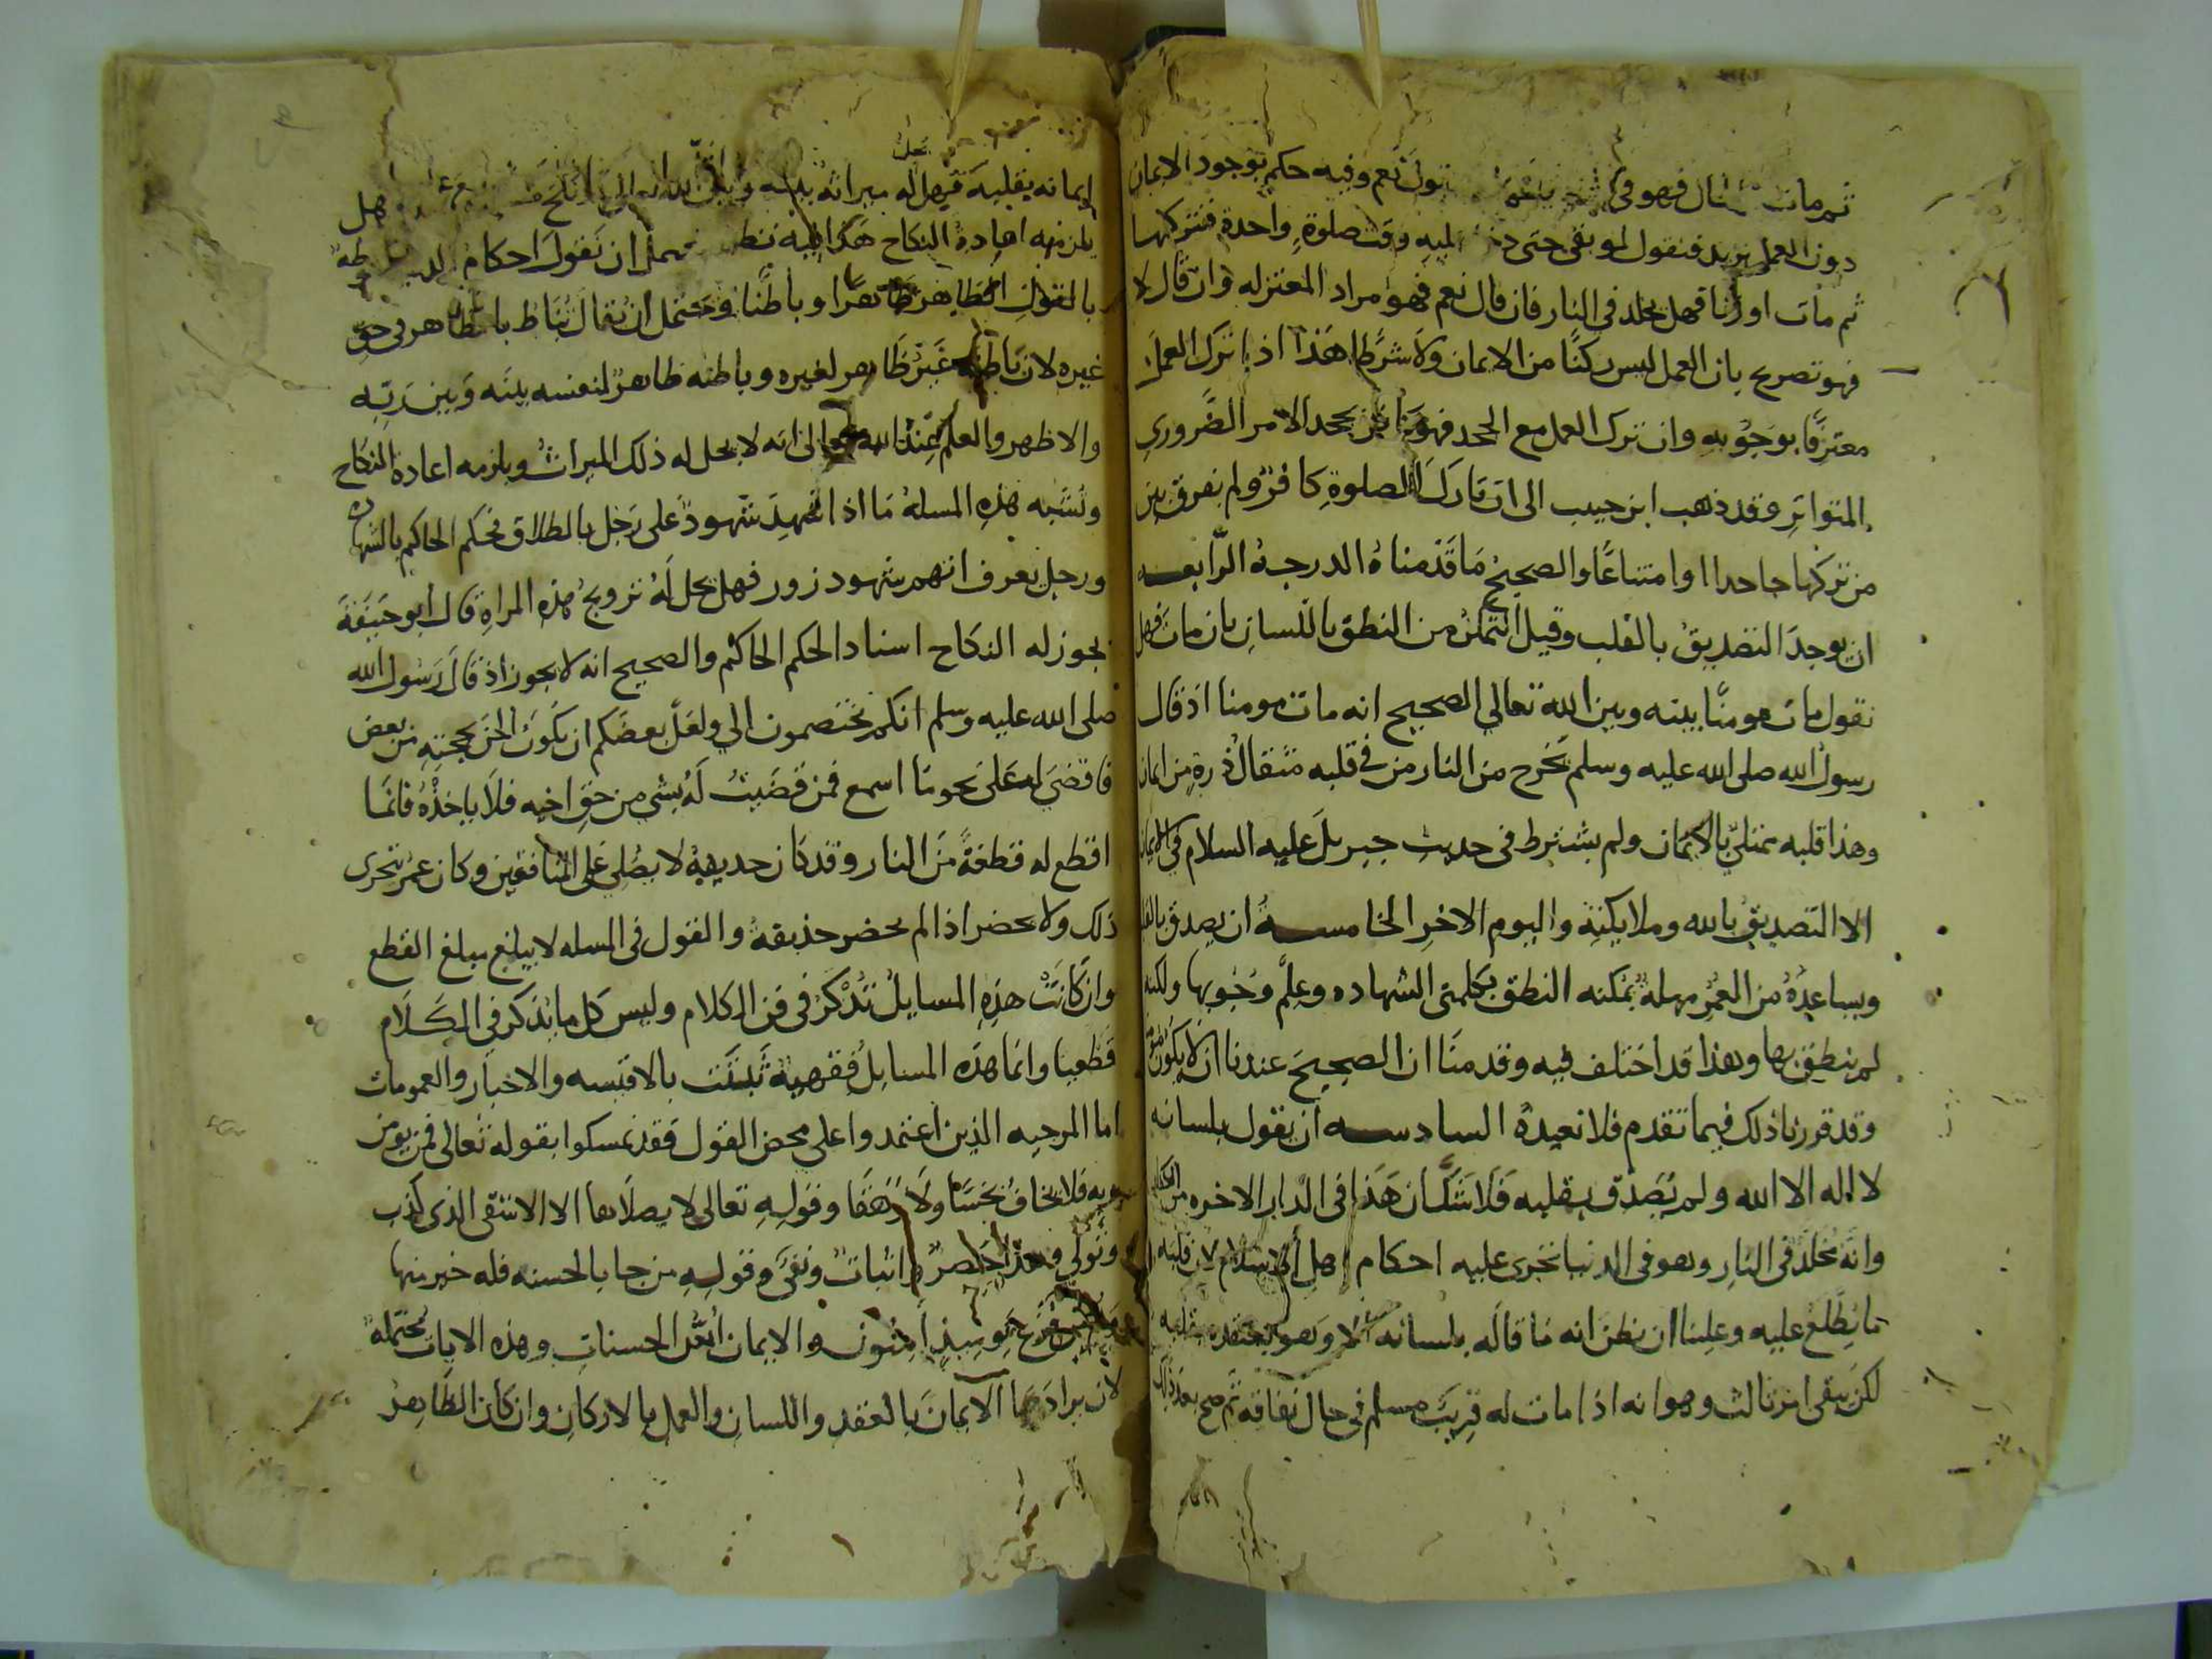 ثم مات قال فهو في نقول نعم وفيه حكم بوجود الايمان
دون العمل نزيد فنقول لو بقى حتى دخل عليه وقت صلوة واحدة فتركها
ثم مات او زنا فهل يخلد في النار فان قال نعم فهو مراد المعتزله وان قال لا
فهو تصريح بان العمل ليس ركنا من الايمان ولا شرطا هذا اذا ترك العمل
معترفا بوجوبه وان ترك العمل مع الجحد فهو كافر بجحد الامر الضروري
المتواتر وقد ذهب ابن حبيب الى ان تارك الصلوة كافر ولم يفرق بين
من تركها جاحدا او امتناعا والصحيح ما قدمناه الدرجة الرابعه
ان يوجد التصديق بالقلب وقبل التمكن من النطق باللسان بان مات فهل
نقول مات مومنا بينه وبين الله تعالى الصحيح انه مات مومنا اذ قال
رسول الله صلى الله عليه وسلم يخرج من النار من في قلبه مثقال ذرة من ايمان
وهذا قلبه ممتلئ بالايمان ولم يشترط في حديث جبريل عليه السلام في الايمان
الا التصديق بالله وملايكته واليوم الاخر الخامسة ان يصدق بالقلب
ويساعده من العمر مهلة يمكنه النطق بكلمتي الشهاده وعلم وجوبها ولكنه
لم ينطق بها وهذا قد اختلف فيه وقدمنا ان الصحيح عندنا ان لا يكون مؤمنا
وقد قررنا ذلك فيما تقدم فلا نعيده السادسه ان يقول بلسانه
لا اله الا الله ولم يصدق بقلبه فلا شك ان هذا في الدار الاخره من الكفار
وانه مخلد في النار وهو في الدنيا تجرى عليه احكام اهل الاسلام لان قلبه
ما نطلع عليه وعلينا ان نظن انه ما قاله بلسانه الا وهو يعتقده بقلبه
لكن بقى امر ثالث وهو انه اذا مات له قريب مسلم في حال نفاقه ثم صح بعد ذلك
ايمانه بقلبه فهل له ميراثه
يلزمه اعادة النكاح هذا فيه نظر يحتمل ان نقول احكام
بالقول الظاهر ظاهرا وباطنا ويحتمل ان يقال تناط بالظاهر في حق
غيره لان باطنه غير ظاهر لغيره وباطنه ظاهر لنفسه بينه وبين ربه
والاظهر والعلم عند الله تعالى انه لا يحل له ذلك الميراث ويلزمه اعادة النكاح
وتشبه هذه المسلة ما اذا شهد شهود على رجل بالطلاق فحكم الحاكم بالشهاده
ورجل يعرف انهم شهود زور فهل يحل له تزويج هذه المراة قال ابو حنيفة
يجوز له النكاح اسنادا لحكم الحاكم والصحيح انه لا يجوز اذ قال رسول الله
صلى الله عليه وسلم انكم تختصمون الي ولعل بعضكم ان يكون الحن بحجته من بعض
فاقضي له على نحو ما اسمع فمن قضيت له بشي من حق اخيه فلا ياخذه فانما
اقطع له قطعة من النار وقد كان حذيفة لا يصلي على المنافقين وكان عمر يتحرى
ذلك ولا يحضر اذا لم يحضر حذيفة والقول في المسله لا يبلغ مبلغ القطع
وان كانت هذه المسايل تذكر في فن الكلام وليس كل ما يذكر في الكلام
قطعيا وانما هذه المسايل فقهية ثبتت بالاقيسه والاخبار والعمومات
اما المرجيه الذين اعتمدوا على محض القول فقد تمسكوا بقوله تعالى فمن يومن
بربه فلا يخاف بخسا ولا رهقا وقوله تعالى لا يصلاها الا الاشقى الذى كذب
وتولى وهذا حصر اثبات ونفي وقوله من جا بالحسنه فله خير منها
وهم من فزع يوميذ امنون والايمان احد الحسنات وهذه الايات محتملة
لان يراد بها الايمان بالعقد واللسان والعمل بالاركان وان كان الظاهر